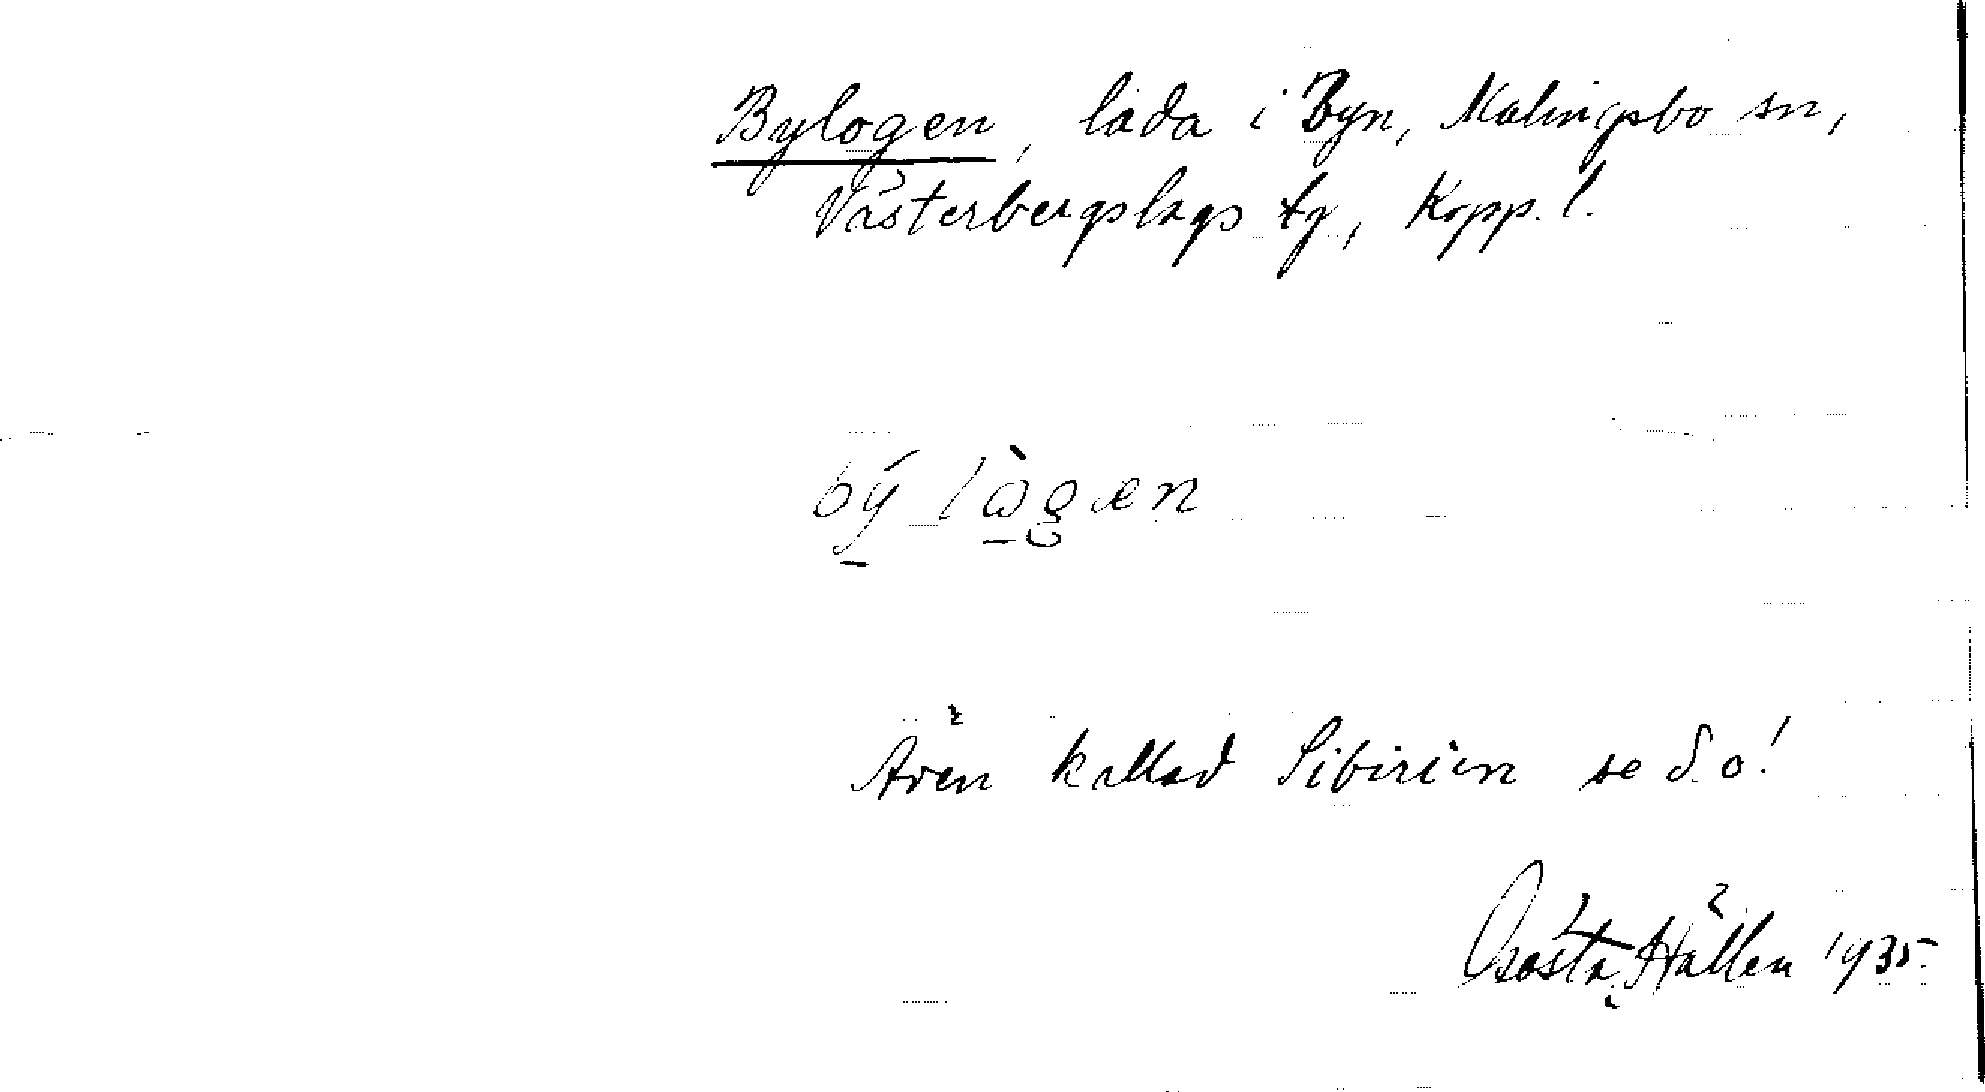 Bylogen, lada i Byn, Malingsbo sn,
Västerbergslags tg, Kopp. l.
bý lògæn
Även kallad Sibirien se d.o!
Gösta Hällen 1935.